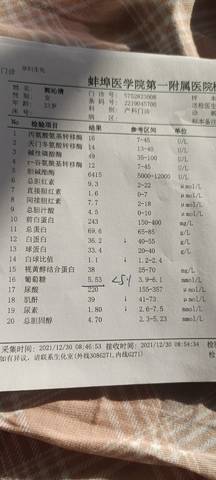 门诊 孕妇生化
蚌埠医学院第一附属医院检
姓名： 门诊号：5702823608 样本
性别：女 条码号：2219045706 送检医生
年龄：31岁 科室：产科门诊
病区：
No 检验项目 结果 参考区间 单位
1 丙氨酸氨基转移酶 16 7-45 U/L
2 天门冬氨酸转移酶 14 13-45 U/L
3 碱性磷酸酶 49 35-100 U/L
4 r-谷氨酰基转移酶 15 7-45 U/L
5 胆碱酯酶 6415 5000-12000 U/L
6 总胆红素 9.3 2-22 μmol/L
7 直接胆红素 1.6 0-7 μmol/L
8 间接胆红素 7.7 2-18 μmol/L
9 总胆汁酸 4.5 0-10 μmol/L
10 前白蛋白 243 150-400 mg/L
11 总蛋白 69.6 65-85 g/L
12 白蛋白 36.2 ↓ 40-55 g/L
13 球蛋白 33.4 20-40 g/L
14 白球比值 1.1 ↓ 1.2-2.4
15 视黄醇结合蛋白 38 25-70 mg/L
16 葡萄糖 5.53 3.9-6.1 mmol/L
17 尿酸 220 155-357 μmol/L
18 肌酐 39 ↓ 41-73 μmol/L
19 尿素 1.80 ↓ 2.6-7.5 mmol/L
20 总胆固醇 4.70 2.3-5.23 mmol/L
采集时间：2021/12/30 08:46:53 接收时间：2021/12/30 08:54:34
如有异议，请联系生化室(外线3086271,内线6271)